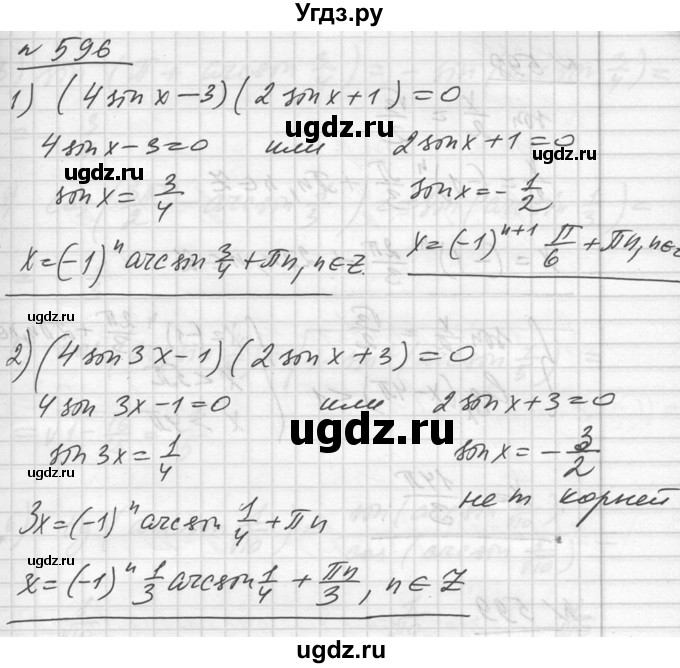 Угдз.ру
№ 596
1) (4 sin x − 3)(2 sin x + 1) = 0
4 sin x − 3 = 0 или 2 sin x + 1 = 0
sin x = 3/4 sin x = − 1/2
x = (−1)^n arcsin 3/4 + πn, n ∈ Z. x = (−1)^{n+1} π/6 + πn, n ∈ Z
2) (4 sin 3x − 1)(2 sin x + 3) = 0
4 sin 3x − 1 = 0 или 2 sin x + 3 = 0
sin 3x = 1/4 sin x = − 3/2
нет корней
3x = (−1)^n arcsin 1/4 + πn
x = (−1)^n 1/3 arcsin 1/4 + πn/3, n ∈ Z
ugdz.ru
ugdz.ru
ugdz.ru
ugdz.ru
ugdz.ru
ugdz.ru
ugdz.ru
ugdz.ru
ugdz.ru
ugdz.ru
ugdz.ru
ugdz.ru